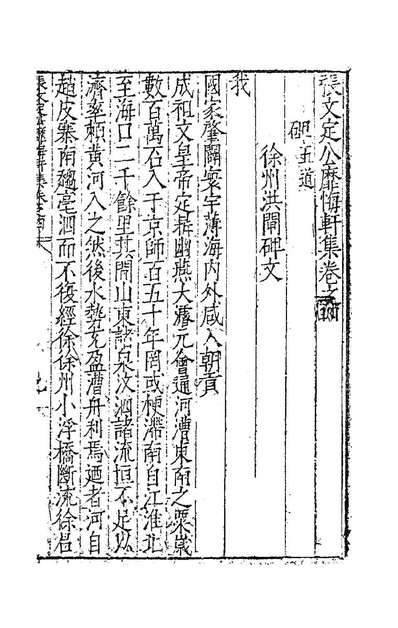 張文定公靡悔軒集卷之四
碑五道
徐州洪閘碑文
我
國家肇闢寰宇薄海内外咸入朝貢
成祖文皇帝定鼎幽燕大濬元會通河漕東南之粟歲
數百萬石入于京師百五十年罔或梗滯南自江淮北
至海口二千餘里其間山東諸泉汶泗諸流恒不足以
濟率賴黃河入之然後水勢充盈漕舟利焉廼者河自
趙皮寨南趨亳泗而不復經徐徐州小浮橋斷流徐吕